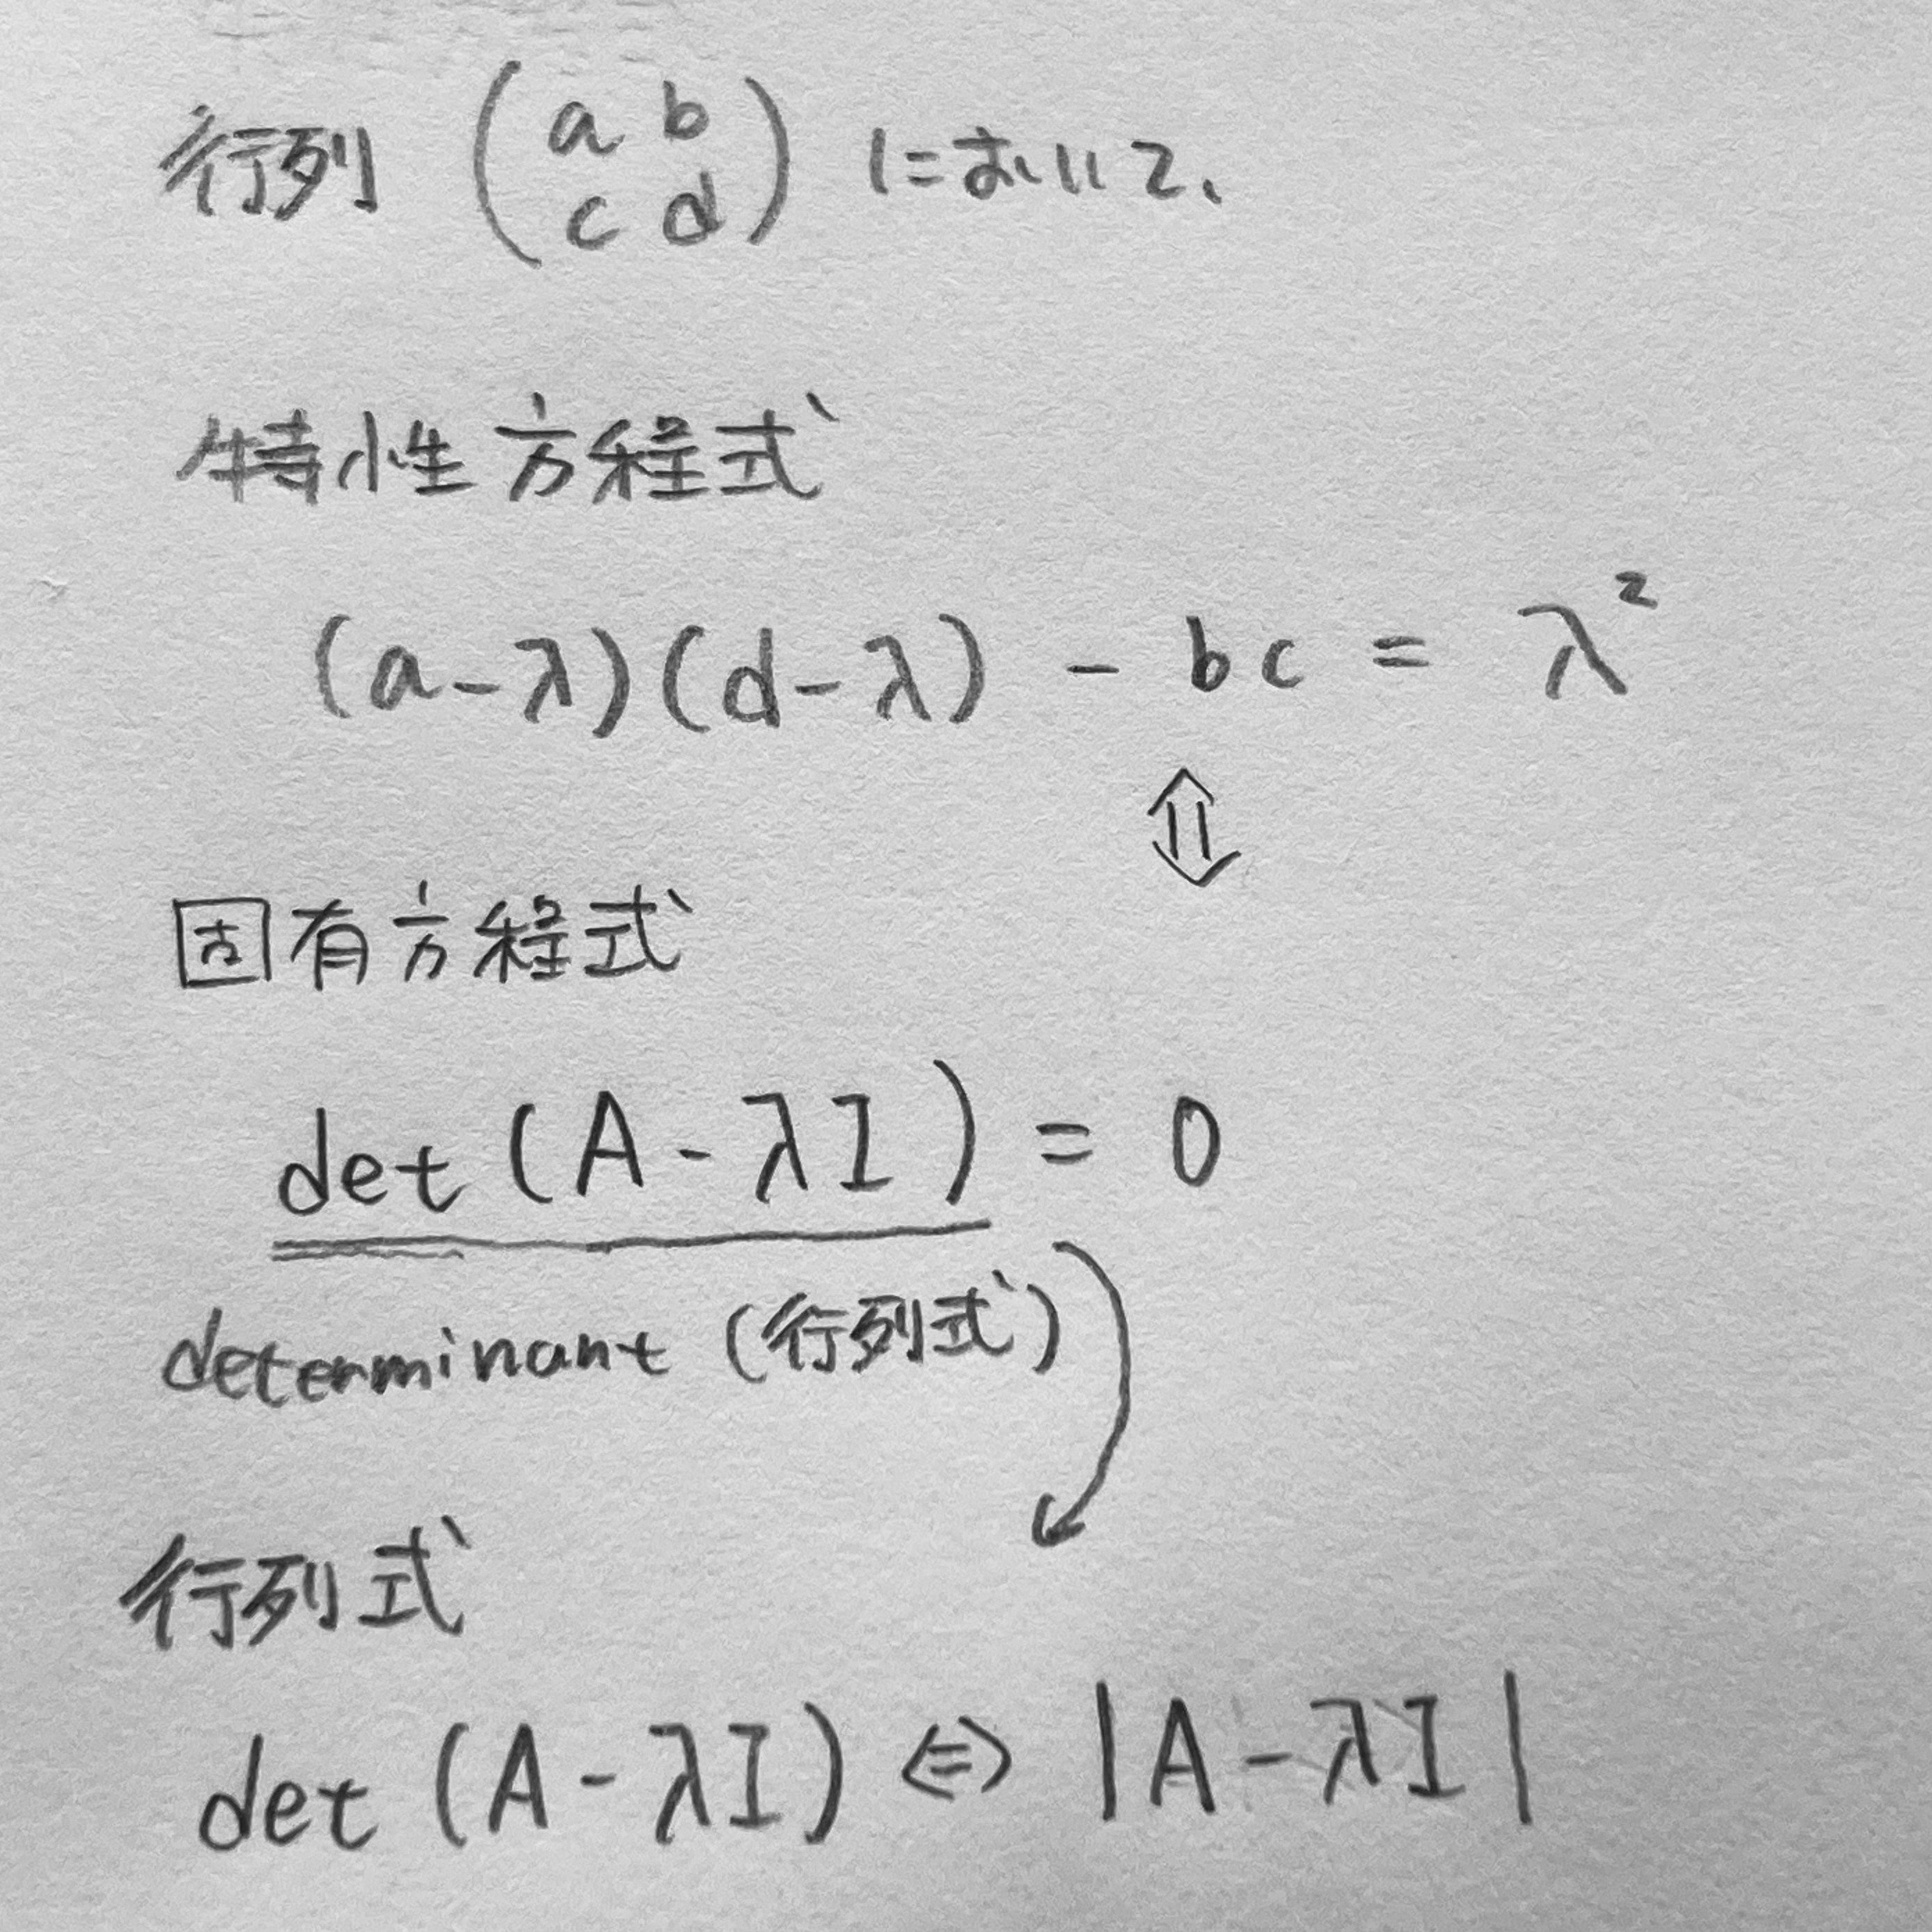 行列 (a b
c d) において、
特性方程式
(a-λ)(d-λ) - bc = λ²
⇕
固有方程式
det (A-λI) = 0
determinant (行列式)
行列式
det (A-λI) ⇔ |A-λI|